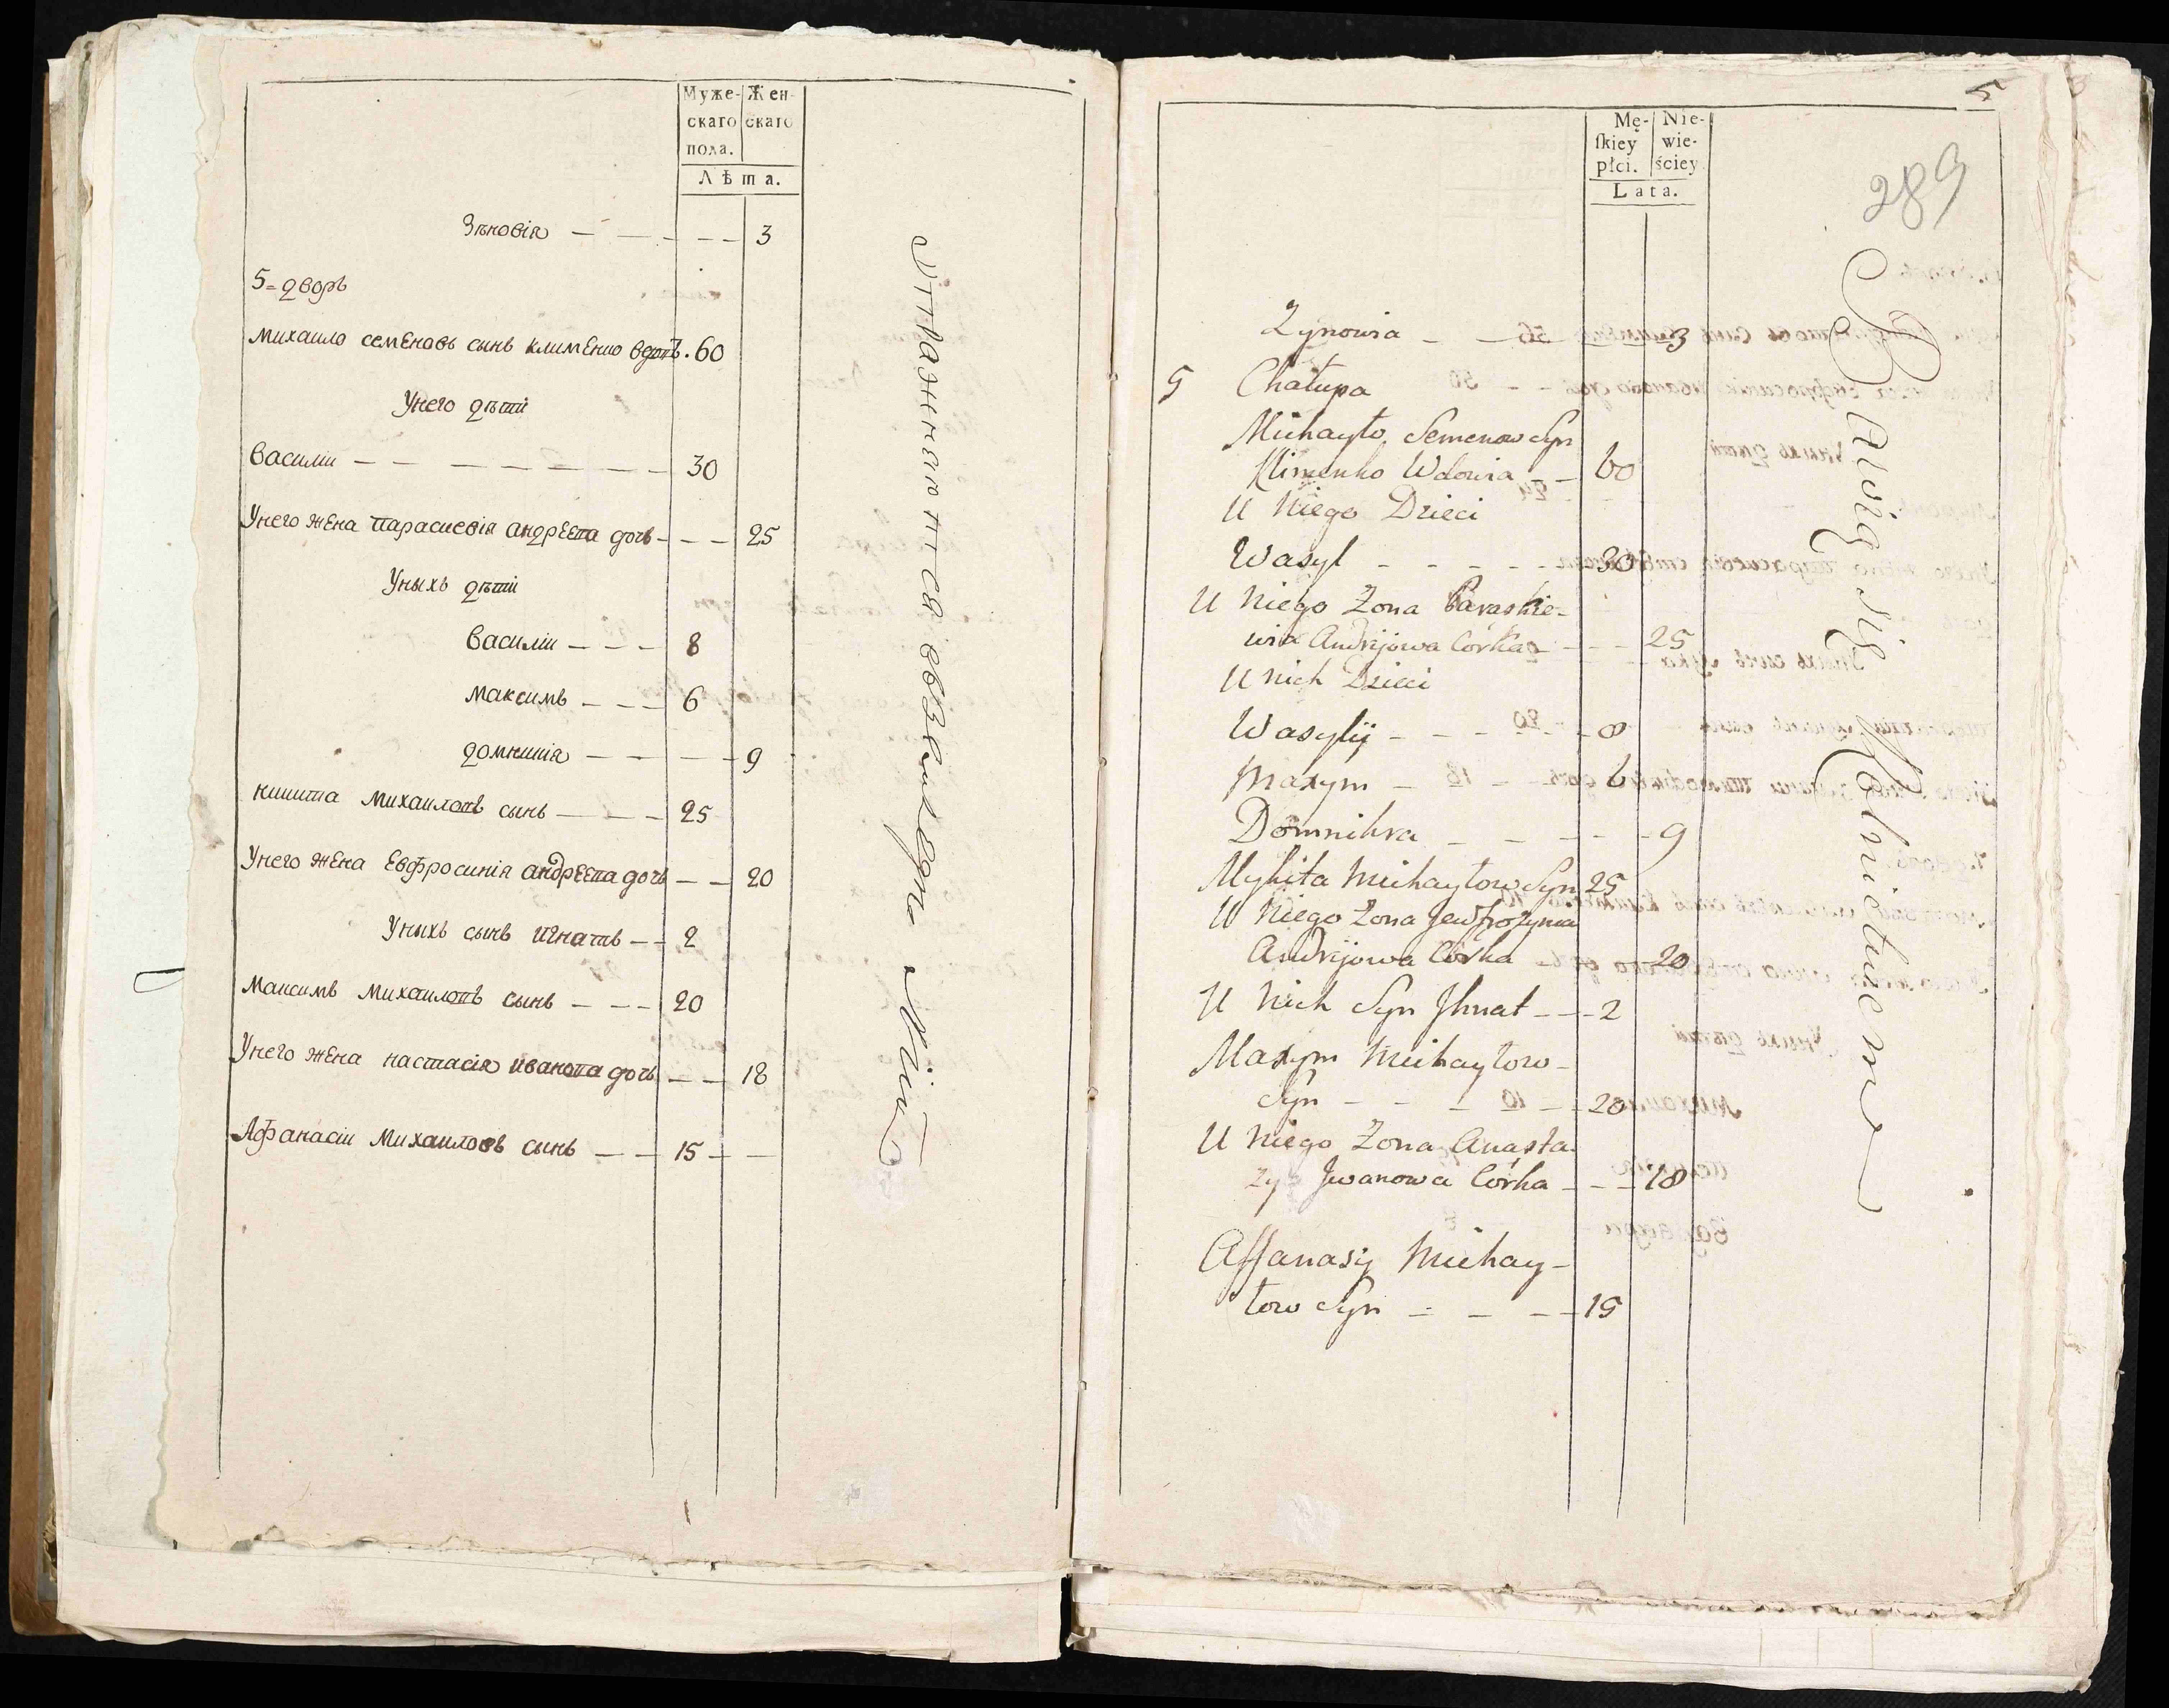 Муже- Жен-
скаго скаго
пола.
Лѣта.
Зѣновія — — — — — 3
5 = дворъ
Михаило семеновъ сынъ клименко вдовъ . 60
Унего дѣти
василіи — — — — — — — 30
Унего жена параскевія андреева дочь — — — 25
Уныхъ дѣти
василіи — — — 8
максимъ — — — 6
домникія — — — — 9
никита михаиловъ сынъ — — — 25
Унего жена Евфросинія андреева дочь — — 20
Уныхъ сынъ игнатъ — — 2
максимъ михаиловъ сынъ — — — 20
Унего жена настасія иванова дочь — — 18
Афанасіи михаиловъ сынъ — — 15 — —
5
289
Mę- Nie-
ſkiey wie-
płci. ściey
Lata.
Zynowia — — — 3
5 Chałupa
Michayło Semenow Syn
Klimenko Wdowia — — 60
U Niego Dzieci
Wasyl — — — — — 30
U Niego Zona Paraskie-
wia Andrijowa Corka — — — 25
U nich Dzieci
Wasylij — — — — — 8
Maxym — — — 6
Domnikra — — — — — 9
Mykita Michayłow Syn 25
U Niego Zona Jewfrozynia
Andrijowa Córka — 20
U Nich Syn Ihnat — — — 2
Maxym Michayłow-
Syn — — — — — 20
U Niego Zona Anasta-
zya Jwanowa Córka — — — 18
Affanasij Michay-
łow Syn — — — — 15